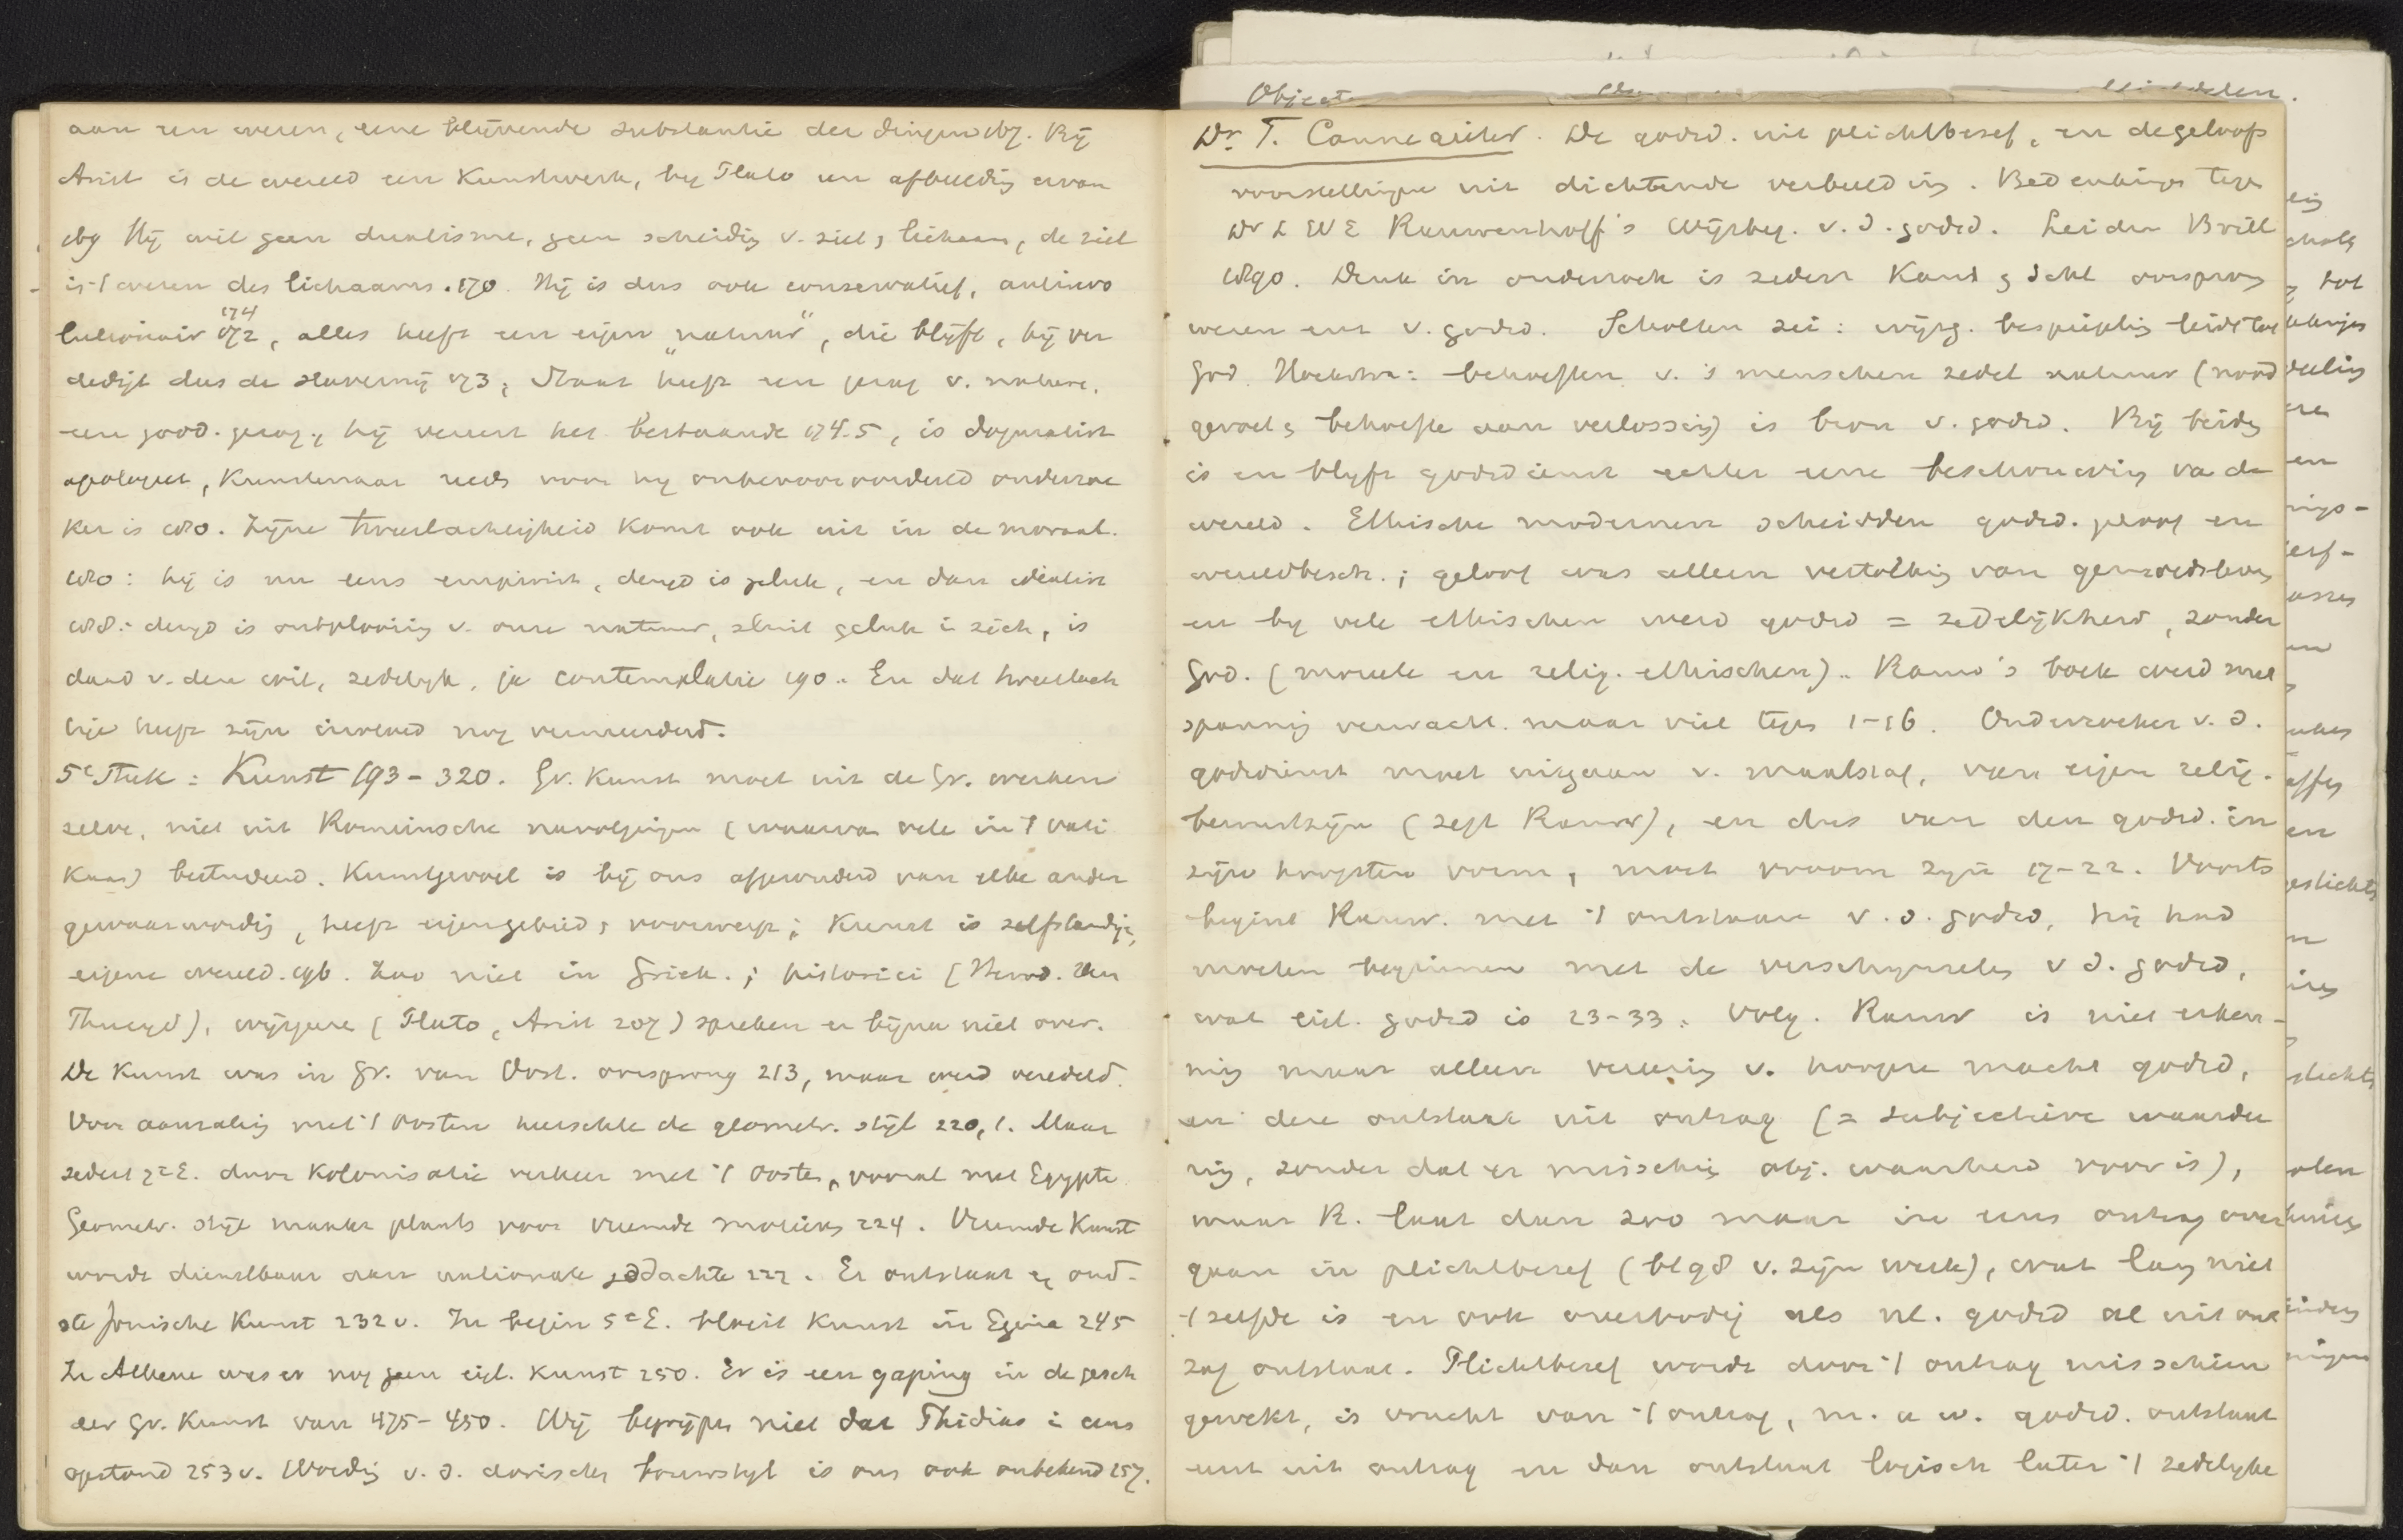 aan een wezen, eene blijvende substantie der dingen 167. Bij
Arist is de wereld een Kunstwerk, by Plato een afbeelding ervan
169 Hij wil geen dualisme, geen scheidig v. ziel, lichaam, de ziel
is 't wezen des lichaams. 170. Hij is dus ook conservatief, antirevo
lutionair 172, 174 alles heeft een eigen „natuur", die blijft, hij ver
dedigt dus de slavernij 173, Staat heeft een v. nature.
een god. , hij vereert het bestaande 174.5, is dogmatist
apologeet, Kunstenaar reeds voor hij onbevooroordeeld onderzoe
ker is 180. Zijne tweeslachtigheid komt ook uit in de moraal.
180: hij is nu eens empirist, deugd is geluk, en dan idealist
188: deugd is ontplooiïng v. onze natuur, sluit geluk i zich, is
daad v. den wil, zedelyk, ja contemplatie 190. En dat tweeslach
tige heeft zijn invloed nog vermeerderd.
5e Stuk: Kunst 193-320. Gr. Kunst moet uit de Gr. werken
zelve, niet uit Romeinsche navolgingen (waarvan vele in 't Vati
kaan) bestudeerd. Kunstgevoel is bij ons afgezonderd van elke ander
gewaarwordig, heeft eigen gebied, voorwerp; Kunst is zelfstandige,
eigene wereld. 196. Zoo niet in Griek.; historici (Herod. en
Thucyd), wijsgeren (Plato, Arist 207) spreken er bijna niet over.
De Kunst was in Gr. van Oost. oorsprong 213, maar werd veredeld.
Voor aanraking met 't Oosten heerschte de geometr. stijl 220,1. Maar
sedert 7e E. door Kolonisatie verkeer met 't Oosten, vooral met Egypte
Geometr. stijl maakt plaats voor vreemde motieven 224. Vreemde Kunst
wordt dienstbaar aan nationale gedachte 227. Er ontstaat oud-
ste Jonische Kunst 232v. In begin 5e E. bloeit Kunst in Egina 245
In Athene was er nog geen eigl. Kunst 250. Er is een gaping in de gesch
der Gr. Kunst van 475-450. Wij begrijpen niet dat Phidias i eens
opstond 253v. Wordig v. d. dorischen bouwstyl is ons ook onbekend 257.
Objecten
middelen.
Dr. T. Cannegieter. De godsd. uit plichtbesef, en de geloofs
voorstellingen uit dichtende verbeelding. Bedenkingen tegen
Dr L W E Rauwenhoff's Wijsbeg. v. d. godsd. Leiden Brill
1890. Denk en onderzoek is sedert Kant, Schl oorsprong
wezen enz v. godsd. Scholten zei: wijsg. bespiegeling leidt tot
God. Hoekstra: behoeften v. 's menschen zedel natuur (nood
gevoel, behoefte aan verlossing) is bron v. godsd. Bij beiden
is en blijft godsdienst echter eene beschouwing van de
wereld. Ethische modernen scheidden godsd. geloof en
wereldbesch.; geloof was alleen vertolking van gemoedsleven
en by vele ethischen werd godsd = zedelijkheid, zonder
God. (moreele en relig. ethischen). Rauw's boek werd met
spannig verwacht. maar viel tegen 1-16. Onderzoeker v. d.
godsdienst moet uitgaan v. maatstaf, van eigen relig.
bewustzijn (zegt Rauw), en dus van den godsd. in
zijn hoogsten vorm, moet vroom zijn 17-22. Voorts
begint Rauw. met 't ontstaan v. d. godsd, hij had
moeten beginnen met de verschijnselen v d. godsd,
wat eigl. godsd is 23-33. Volg. Rauw is niet erken-
ning maar alleen vereering v. hoogere macht godsd,
en deze ontstaat uit ontzag (= subjectieve waardee
ring, zonder dat er misschien obj. waarheid voor is),
maar R. laat dan zoo maar in eens ontzag over
gaan in plichtbesef (bl 98 v. zijn werk), wat lang niet
't zelfde is en ook overbodig als nl. godsd al uit ont
zag ontstaat. Plichtbesef wordt door 't ontzag misschien
gewekt, is vrucht van 't ontzag, m. a. w. godsd. ontstaat
eerst uit ontzag en dan ontstaat logisch later 't zedelyke